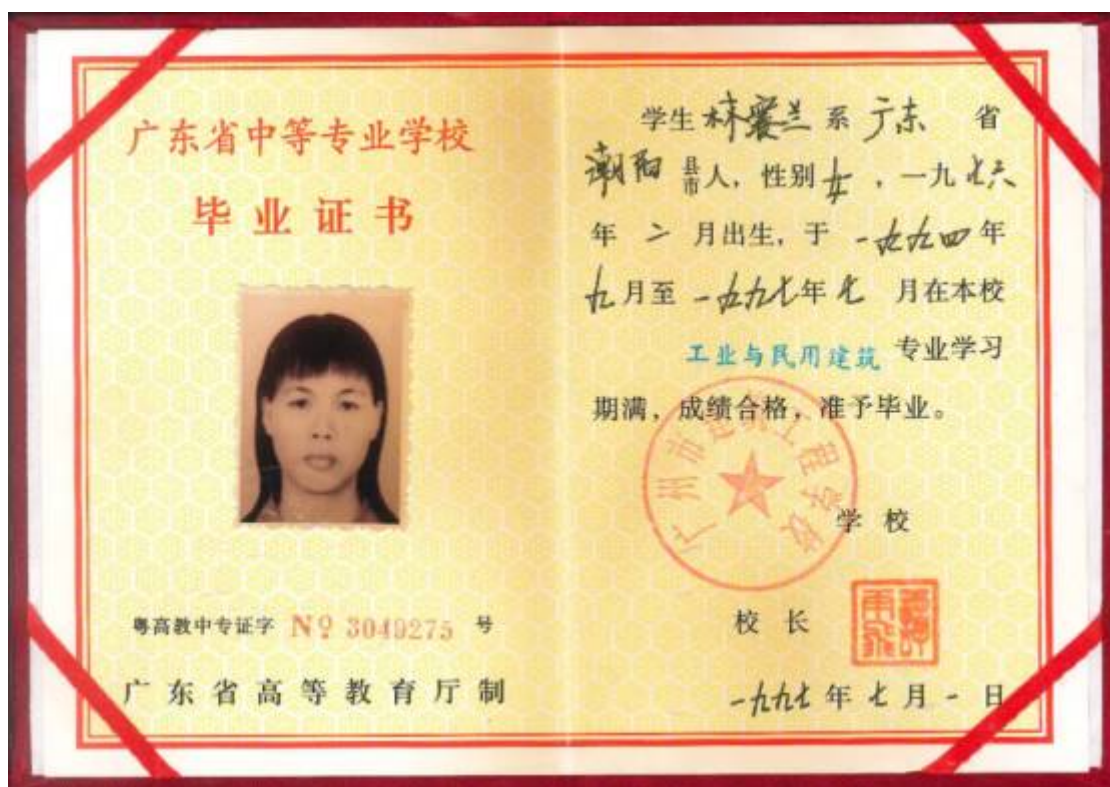 广东省中等专业学校
毕业证书
粤高教中专证字 № 3049275 号
广东省高等教育厅制
学生林兰系广东省
潮阳县市人，性别女，一九七六
年二月出生，于一九九四年
九月至一九九七年七月在本校
工业与民用建筑专业学习
期满，成绩合格，准予毕业。
广州市建筑工程学校
学校
校长
一九九七年七月一日